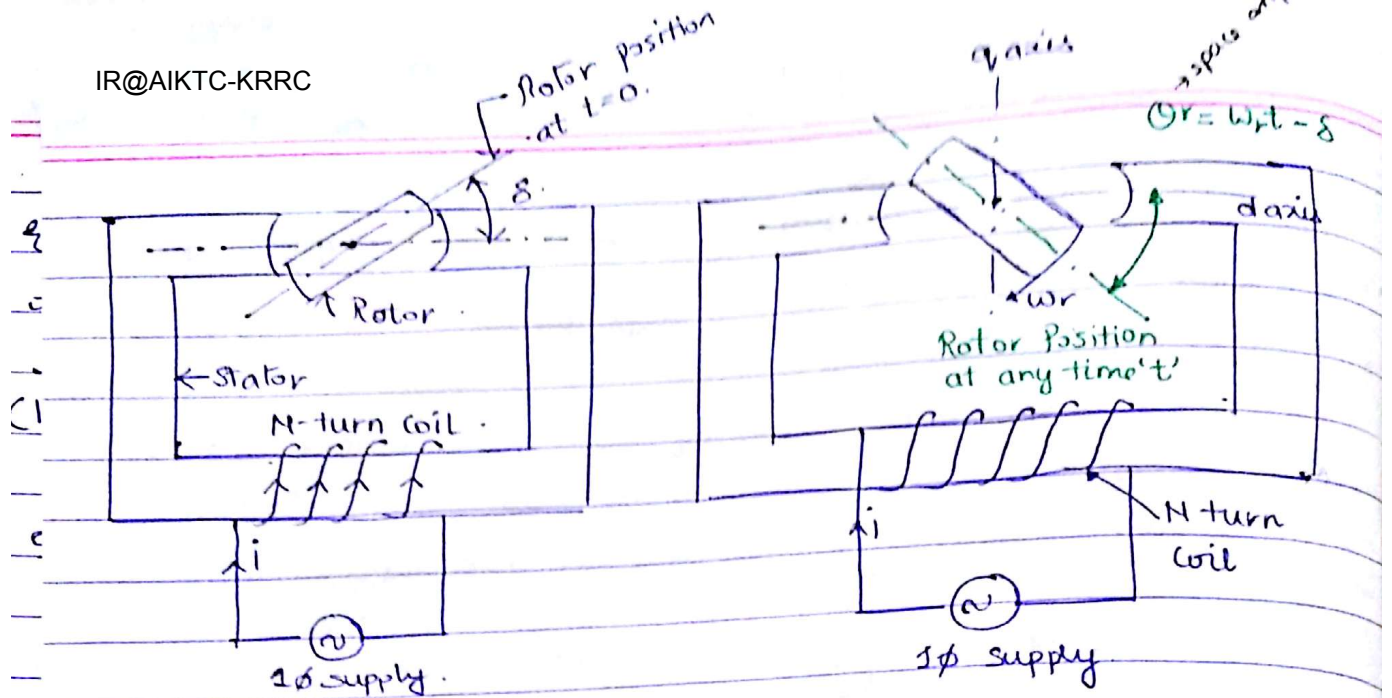 IR@AIKTC-KRRC
Rotor position
at t=0.
δ.
Rotor.
←Stator
N-turn coil.
i
1ϕ supply.
q axis
→ space
θr = ωrt - δ
d axis
ωr
Rotor Position
at any time 't'
N-turn
coil
i
1ϕ supply.